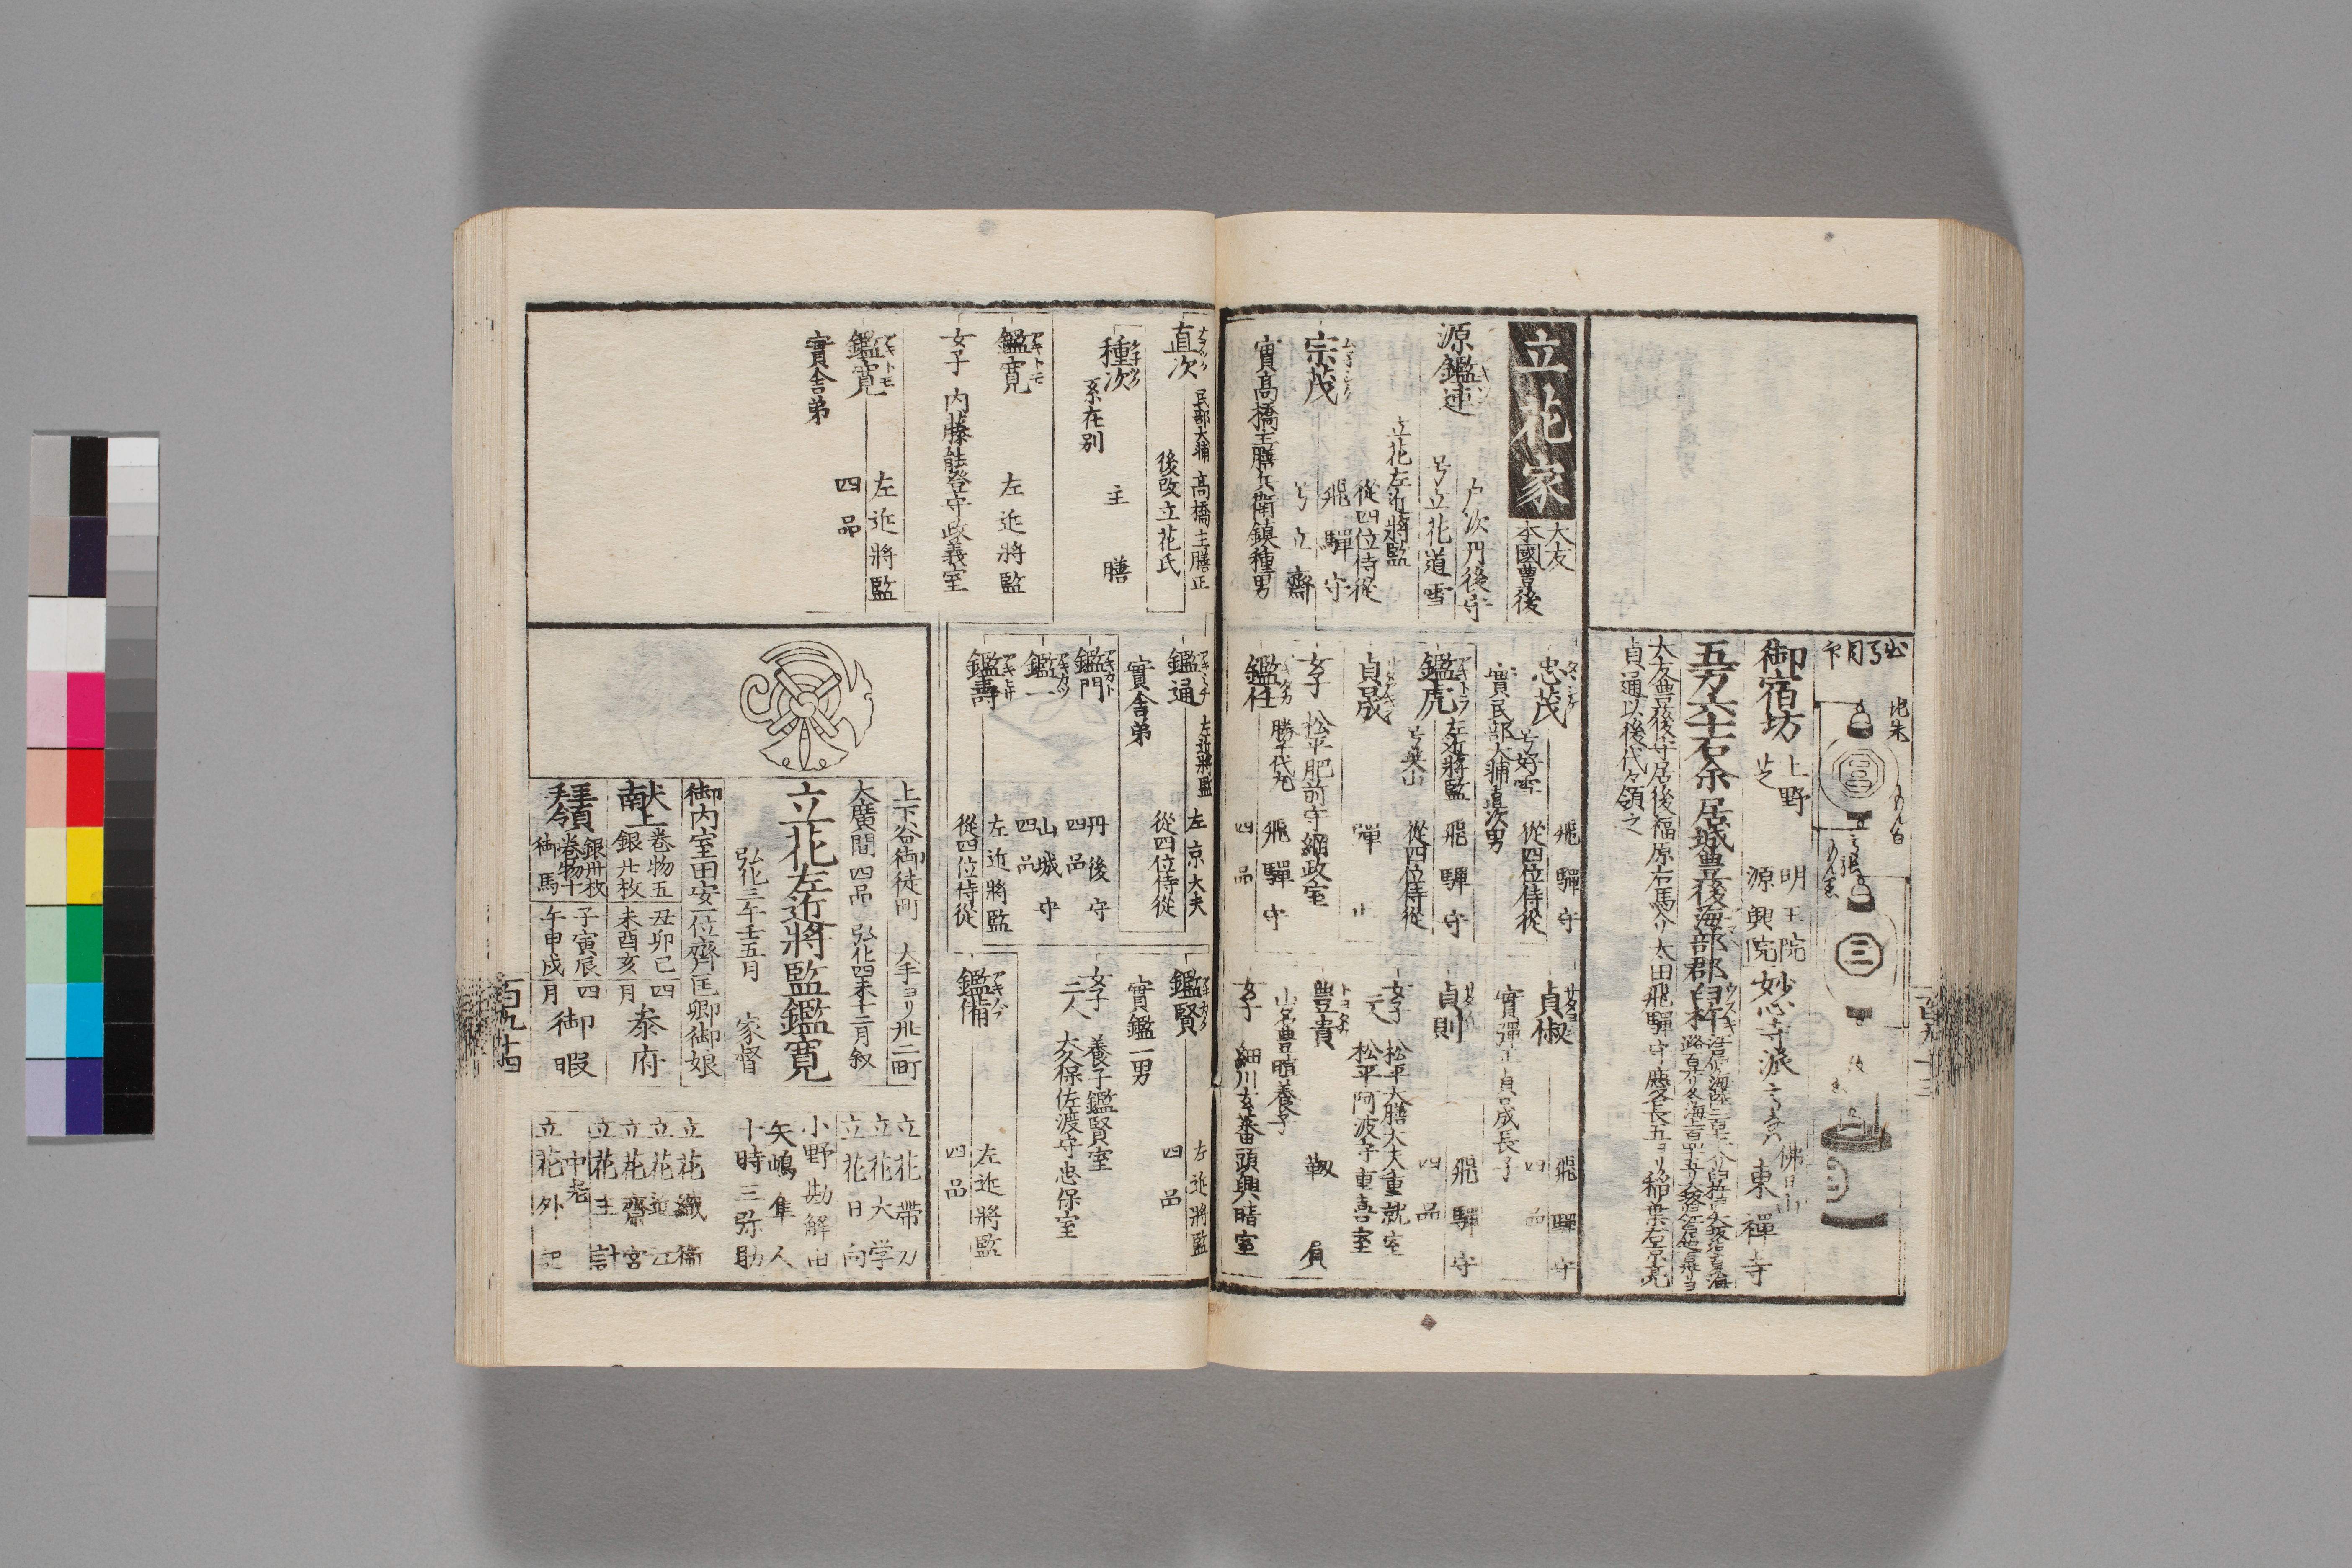 地朱
御宿坊
上野
芝
明王院
源興院
妙心寺派
佛日山
東禪寺
五万六十石余
居城豊後海部郡臼杵
ウスキ
大友豊後守居後福原右馬介太田飛騨守慶長五ヨリ稲葉右京亮
貞通以後代々領之
百九十三
立花家
大友
本國豊後
源鑑連
戸次丹後守
号立花道雪
立花左近將監
從四位侍從
宗茂
飛騨守
号立齋
實高橋主膳兵衛鎮種男
忠茂
号好雪
飛騨守
從四位侍從
實民部大輔直次男
鑑虎
アキトラ
左近將監
飛騨守
号英山
從四位侍從
貞晟
女子
松平肥前守綱政室
鑑任
飛騨守
勝千代丸
四品
貞俶
飛騨守
四品
實彈正貞晟長子
貞則
飛騨守
四品
女子
二人
松平大膳大夫重就室
松平阿波守重喜室
豊貴
トヨタカ
靱負
山名豊暄養子
女子
細川玄蕃頭興晴室
直次
ナヲツク
民部大輔
高橋主膳正
後改立花氏
種次
主膳
系在別
鑑寛
アキトモ
左近將監
女子
内藤能登守政義室
鑑寛
アキトモ
左近將監
四品
實舎弟
鑑通
アキミチ
左近將監
左京大夫
從四位侍從
實舎弟
鑑門
アキカト
丹後守
四品
鑑一
アキカツ
山城守
四品
鑑壽
アキヒサ
左近將監
從四位侍從
鑑賢
アキカタ
左近將監
四品
實鑑一男
女子
二人
養子鑑賢室
大久保佐渡守忠保室
鑑備
アキノブ
左近將監
四品
上下谷御徒町
大手ヨリ卅二町
大廣間
四品
弘化四未十二月叙
立花左近將監鑑寛
弘化三午壬五月
家督
御内室田安一位齊匡卿御娘
献上
巻物五
銀廿枚
丑卯巳
未酉亥
四月
参府
拜領
銀卅枚
巻物十
御馬
子寅辰
午申戌
四月
御暇
立花帶刀
立花大学
立花日向
小野勘解由
矢嶋隼人
十時三弥助
立花織衛
立花近江
立花齋宮
立花主計
中老
立花外記
百九十四